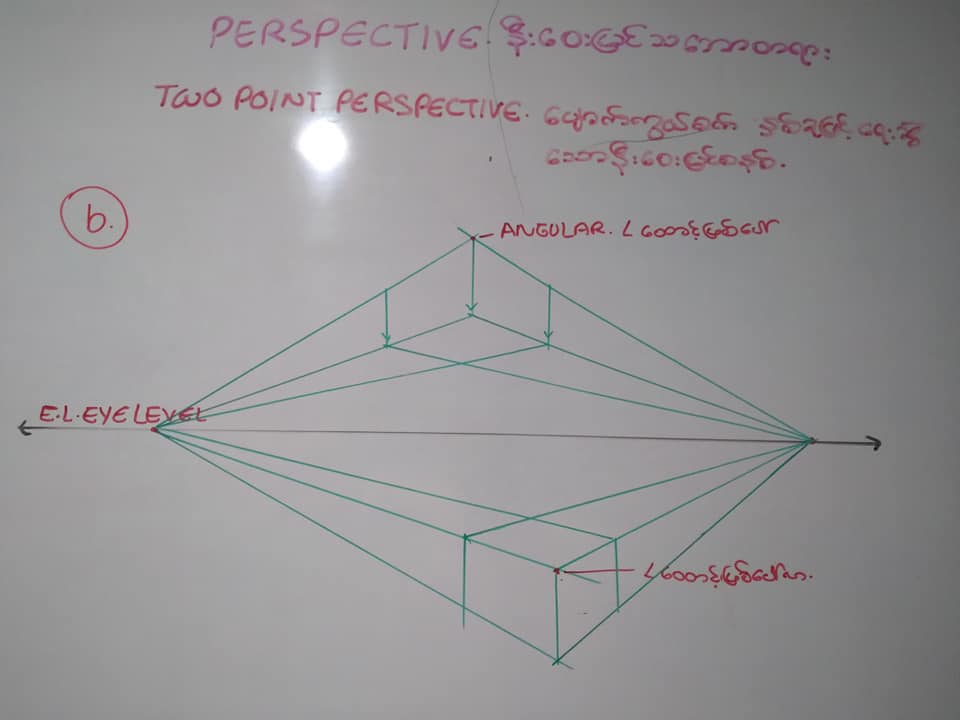 PERSPECTIVE. နီးဝေးမြင်သဘောတရား
TWO POINT PERSPECTIVE. ပျောက်ကွယ်စက် နှစ်ခုဖြင့် ရေးဆွဲ
သောနီးဝေးမြင်စနစ်.
b.
ANGULAR. L ထောင့်ဖြစ်ပေါ်
E.L.EYE LEVEL
L ထောင့်ဖြစ်ပေါ်လာ.